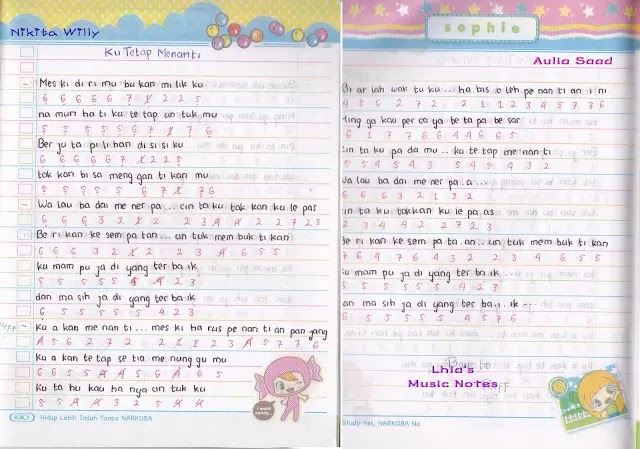 Nikita Willy
Ku Tetap Menanti
Mes ki di ri mu bu kan mi lik ku
6 6 6 6 6 7 1 2 2 5
na mun ha ti ku te tap un tuk mu
5 5 5 5 5 6 7 1 7 6
Ber ju ta pi li han di si si ku
6 6 6 6 6 7 1 2 2 5
tak kan bi sa meng gan ti kan mu
5 5 5 5 5 6 7 1 7 6
Wa lau ba dai me ner pa... cin ta ku tak kan ku le pas
6 6 6 3 2 1 2 2 3 4 4 2 2 7 2 3
Be ri kan ke sem pa tan... un tuk mem buk ti kan
6 6 6 3 2 1 2 2 3 4 6 5 5
ku mam pu ja di yang ter ba ik
5 5 5 5 5 4 4 2 3
dan ma sih ja di yang ter ba ik
6 5 5 5 5 5 4 2 3
Reff:
Ku a kan me nan ti... mes ki ha rus pe nan ti an pan jang
4 5 6 2 7 2 2 1 1 2 3 4 5 7 7 6
Ku a kan te tap se tia me nung gu mu
6 6 5 5 4 4 5 6 4 6 5
Ku ta hu kau ha nya un tuk ku
5 5 4 4 3 2 5 4 4
I want candy...
KIKY
Hidup Lebih Indah Tanpa NARKOBA
sophie
Aulia Saad
Bi ar lah wak tu ku... ha bis o leh pe nan ti an i ni
4 5 6 2 7 2 2 1 1 2 3 4 5 7 7 6
Hing ga kau per ca ya be ta pa be sar
6 1 7 7 6 6 4 4 6 6 5
cin ta ku pa da mu.. ku te tap me nan ti
5 5 4 5 4 3 5 4 5 4 3 2
Wa lau ba dai me ner pa..a...
6 6 6 3 2 1 3 2
cin ta ku takkan ku le pa.as
2 3 4 4 2 2 7 2 3
Be ri kan ke sem pa ta.an.. un tuk mem buk ti kan
7 6 7 6 4 3 2 2 3 4 6 5 5
ku mam pu ja di yang ter ba.ik...
5 5 5 5 5 4 4 2 3
dan ma sih ja di yang ter ba.i.ik...
6 5 5 5 5 5 4 5 7 6
Lhia's
Music Notes
Study Yes, NARKOBA No